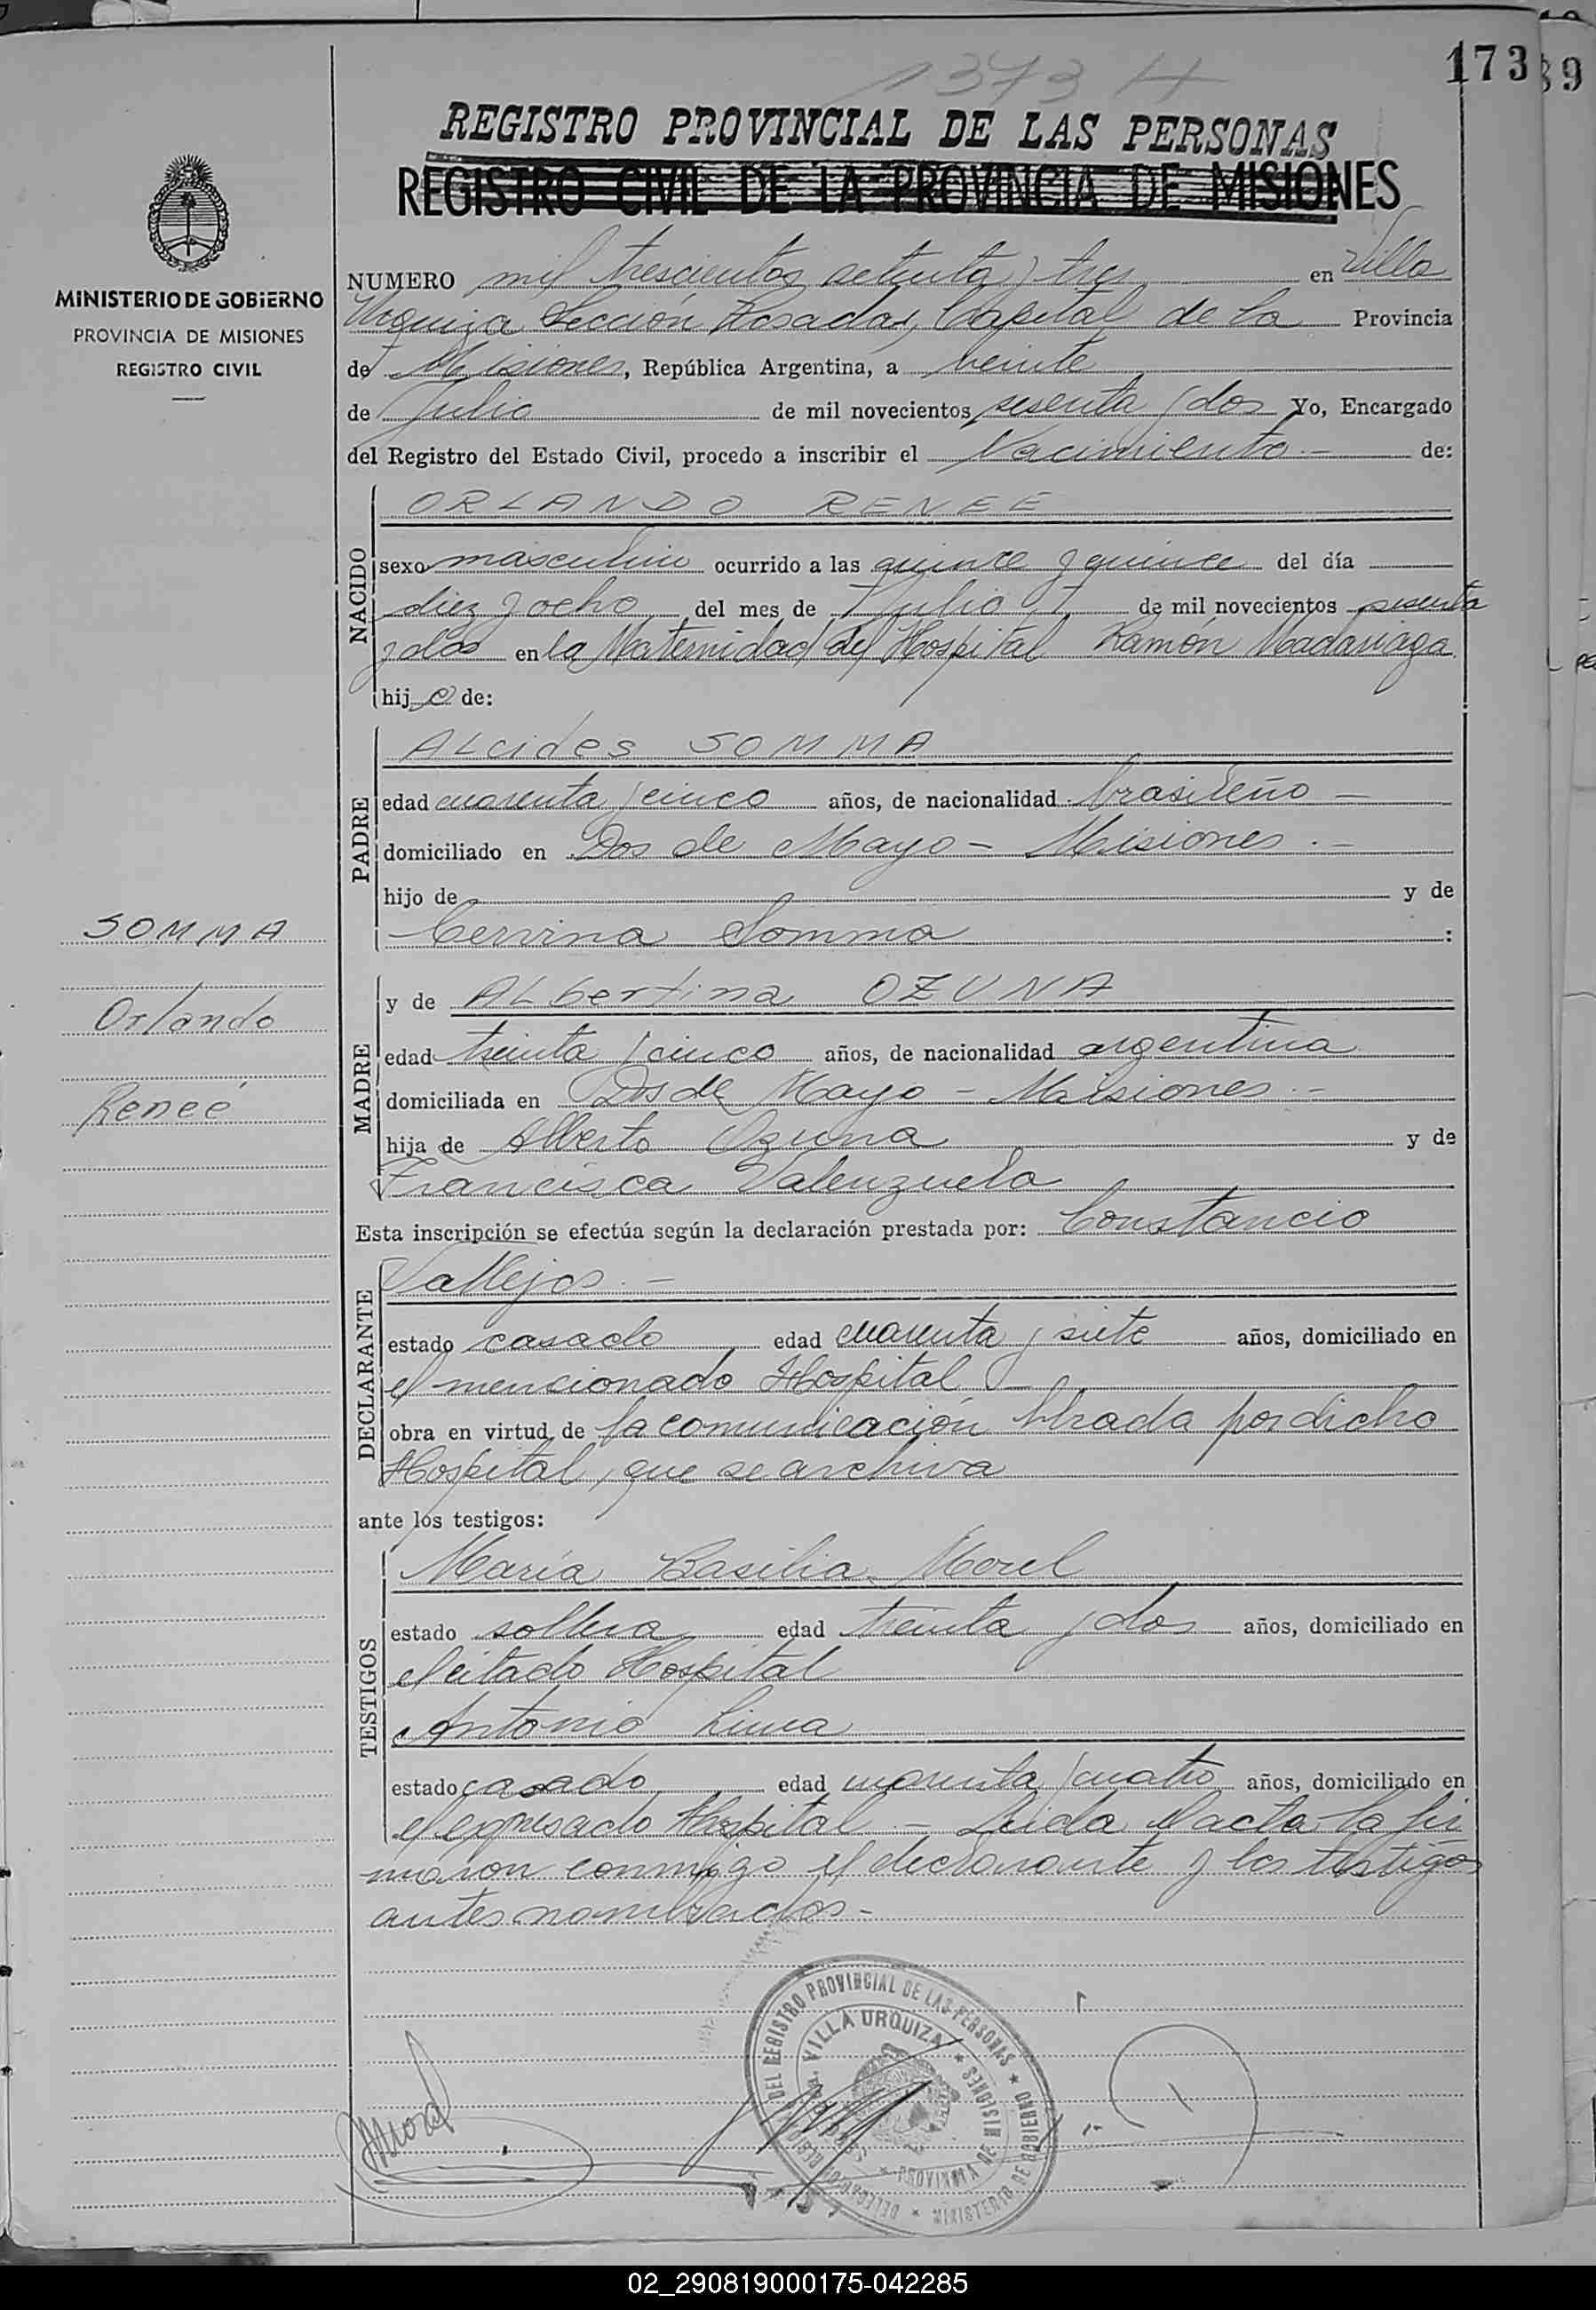 1373 H
173
89
REGISTRO PROVINCIAL DE LAS PERSONAS
REGISTRO CIVIL DE LA PROVINCIA DE MISIONES
MINISTERIO DE GOBIERNO
PROVINCIA DE MISIONES
REGISTRO CIVIL
NUMERO mil trescientos setenta y tres en Villa
Urquiza Sección Posadas, Capital de la Provincia
de Misiones, República Argentina, a veinte
de Julio de mil novecientos sesenta y dos Yo, Encargado
del Registro del Estado Civil, procedo a inscribir el Nacimiento.- de:
NACIDO
ORLANDO RENEE
sexo masculino ocurrido a las quince y quince del día
diez y ocho del mes de Julio de mil novecientos sesenta
y dos en la Maternidad del Hospital Ramón Madariaga
hijo de:
PADRE
ALcides SOMMA
edad cuarenta y cinco años, de nacionalidad brasileño -
domiciliado en Dos de Mayo - Misiones .-
hijo de y de
Cervina Somma :
SOMMA
Orlando
Reneé
MADRE
y de ALbertina OZUNA
edad treinta y cinco años, de nacionalidad argentina
domiciliada en Dos de Mayo - Misiones .-
hija de Alberto Ozuna y de
Francisca Valenzuela
Esta inscripción se efectúa según la declaración prestada por: Constancio
DECLARANTE
Vallejos .-
estado casado edad cuarenta y siete años, domiciliado en
el mencionado Hospital -
obra en virtud de la comunicación librada por dicho
Hospital, que se archiva
ante los testigos:
TESTIGOS
María Basilia Morel
estado soltera edad treinta y dos años, domiciliado en
el citado Hospital
Antonio Lima
estado casado edad cuarenta y cuatro años, domiciliado en
el expresado Hospital - Leida el acta la fir
maron conmigo el declarante y los testigos
antes nombrados -
DEL REGISTRO PROVINCIAL DE LAS PERSONAS * MINISTERIO DE GOBIERNO *
VILLA URQUIZA * PROVINCIA DE MISIONES *
Morel
02_290819000175-042285